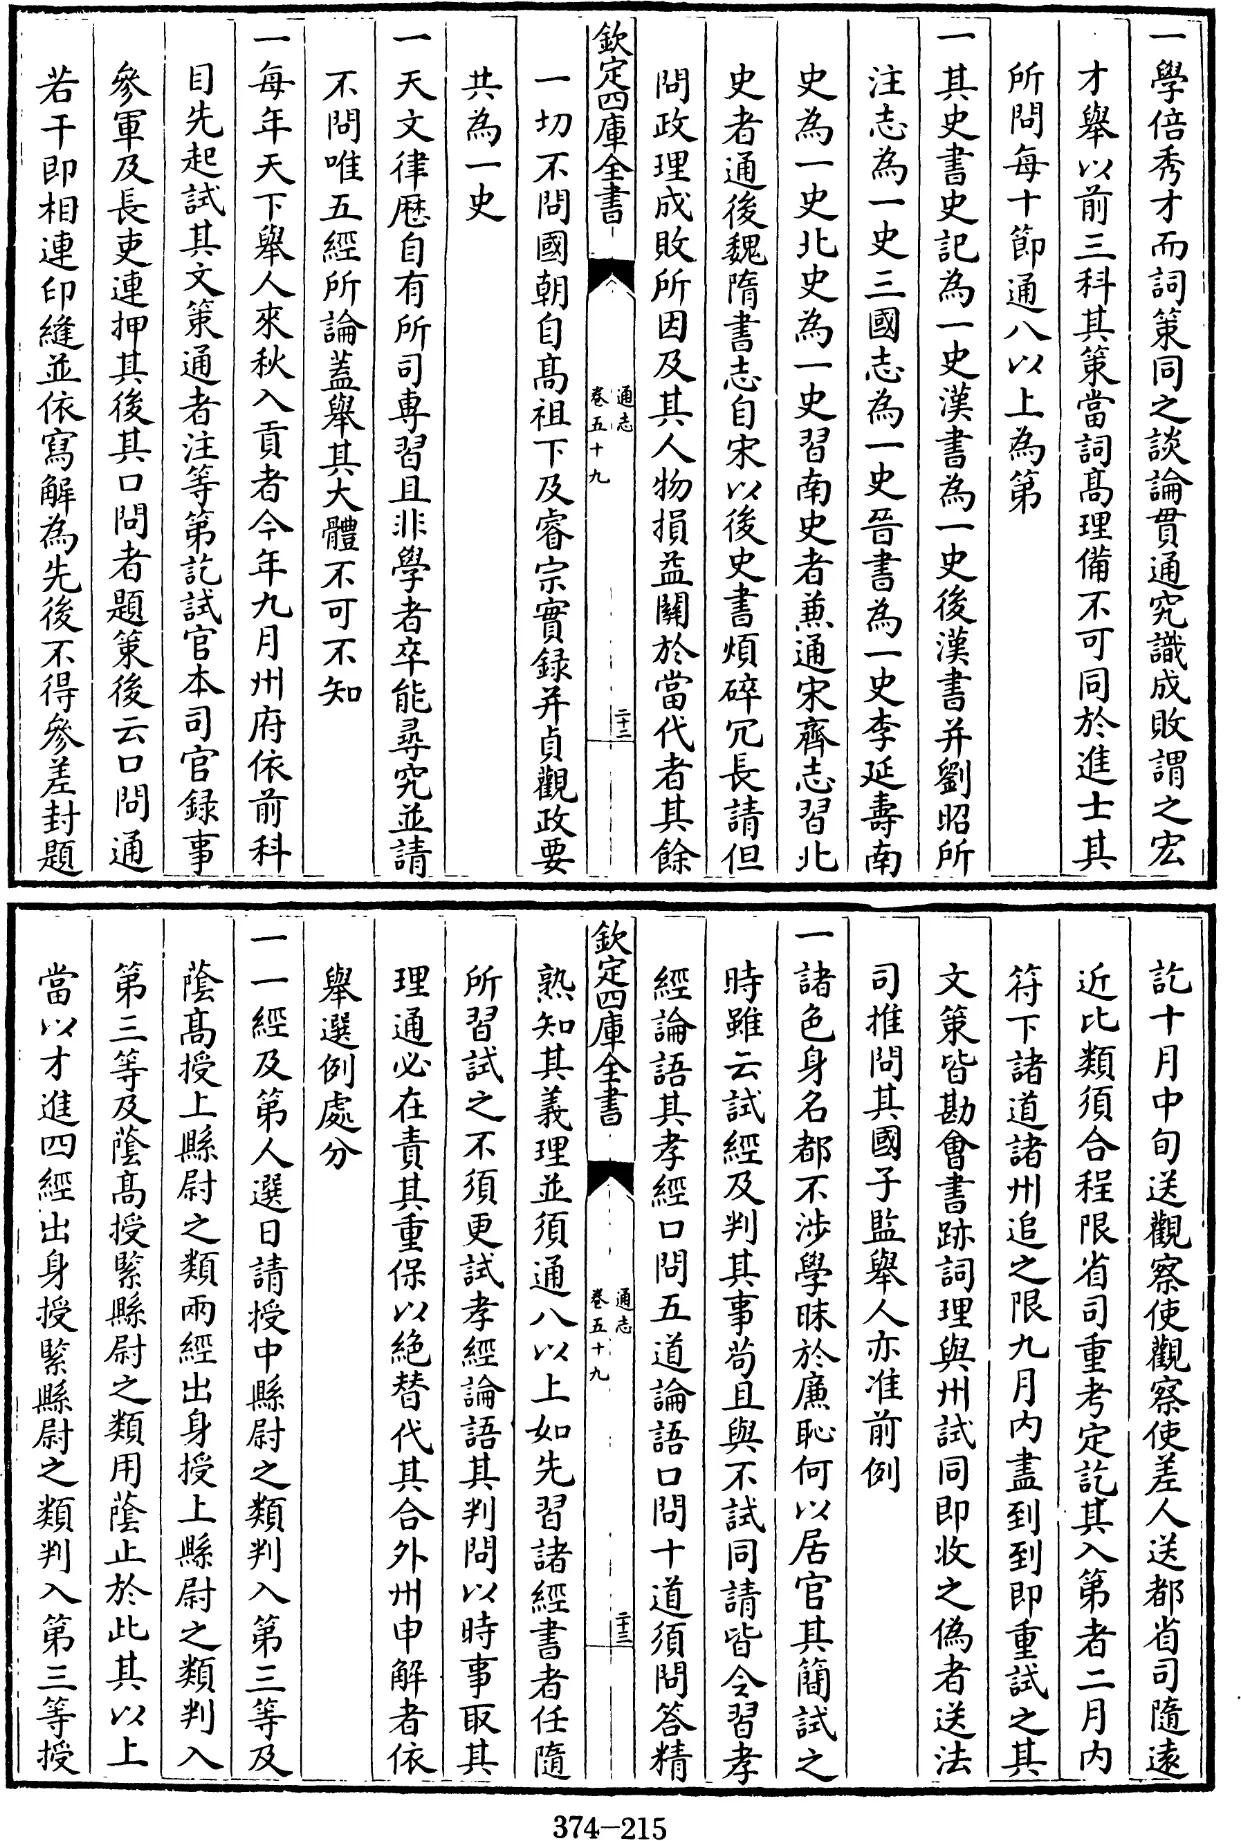 一學倍秀才而詞策同之談論貫通究識成敗謂之宏
才舉以前三科其策當詞高理備不可同於進士其
所問每十節通八以上為第
一其史書史記為一史漢書為一史後漢書并劉昭所
注志為一史三國志為一史晉書為一史李延壽南
史為一史北史為一史習南史者兼通宋齊志習北
史者通後魏隋書志自宋以後史書煩碎冗長請但
問政理成敗所因及其人物損益關於當代者其餘
欽定四庫全書
通志
卷五十九
二十二
一切不問國朝自高祖下及睿宗實録并貞觀政要
共為一史
一天文律歴自有所司專習且非學者卒能尋究並請
不問唯五經所論蓋舉其大體不可不知
一每年天下舉人來秋入貢者今年九月州府依前科
目先起試其文策通者注等第訖試官本司官録事
參軍及長吏連押其後其口問者題策後云口問通
若干即相連印縫並依寫解為先後不得參差封題
訖十月中旬送觀察使觀察使差人送都省司隨遠
近比類須合程限省司重考定訖其入第者二月内
符下諸道諸州追之限九月内盡到到即重試之其
文策皆勘會書跡詞理與州試同即收之偽者送法
司推問其國子監舉人亦准前例
一諸色身名都不涉學昧於廉恥何以居官其簡試之
時雖云試經及判其事茍且與不試同請皆令習孝
經論語其孝經口問五道論語口問十道須問答精
欽定四庫全書
通志
卷五十九
二十三
熟知其義理並須通八以上如先習諸經書者任隨
所習試之不須更試孝經論語其判問以時事取其
理通必在責其重保以絶替代其合外州申解者依
舉選例處分
一一經及第人選日請授中縣尉之類判入第三等及
蔭高授上縣尉之類兩經出身授上縣尉之類判入
第三等及蔭高授緊縣尉之類用蔭止於此其以上
當以才進四經出身授緊縣尉之類判入第三等授
374-215